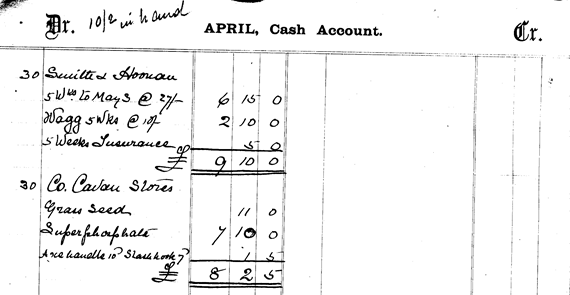 Dr. 10/2 in hand APRIL, Cash Account. Cr.
30 Smith & Hoonan
5 Wks to May 3 @ 27/- 6 15 0
Wagg 5 Wks @ 10/- 2 10 0
5 Weeks Insurance 5 0
£ 9 10 0
30 Co. Cavan Stores
Grass Seed 11 0
Superphosphate 7 10 0
Axe handle 10d Slash hook 7d 1 5
£ 8 2 5